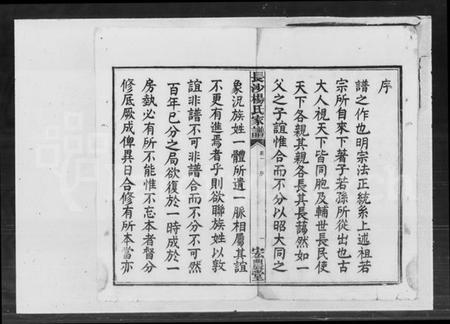 序
譜之作也明宗法正統系上述祖若
宗所自來下著子若孫所從出也古
大人視天下皆同胞及輔世長民使
天下各親其親各長其長藹然如一
父之子誼惟合而不分以昭大同之
長沙楊氏家譜
卷一 序
一
象況族姓一體所遺一脈相屬其誼
不更有進焉者乎則欲聯族姓以敦
誼非譜不可非譜合而不分不可然
百年已分之局欲復於一時成於一
房埶必有所不能惟不忘本者督分
修底厥成俾異日合修有所本當亦